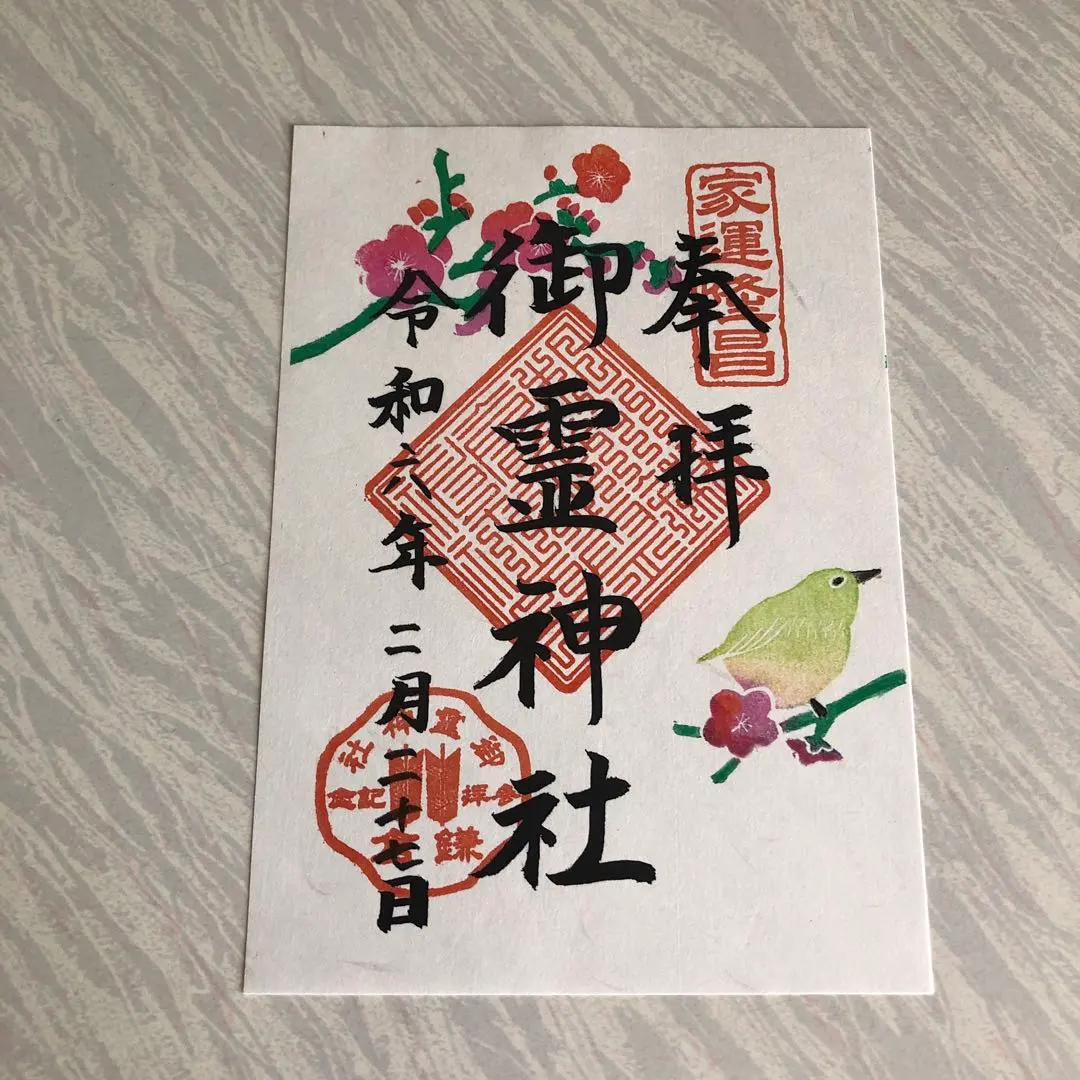 家運隆昌
奉拝
御霊神社
令和六年 二月二十七日
御霊神社
参拝記念
鎌倉